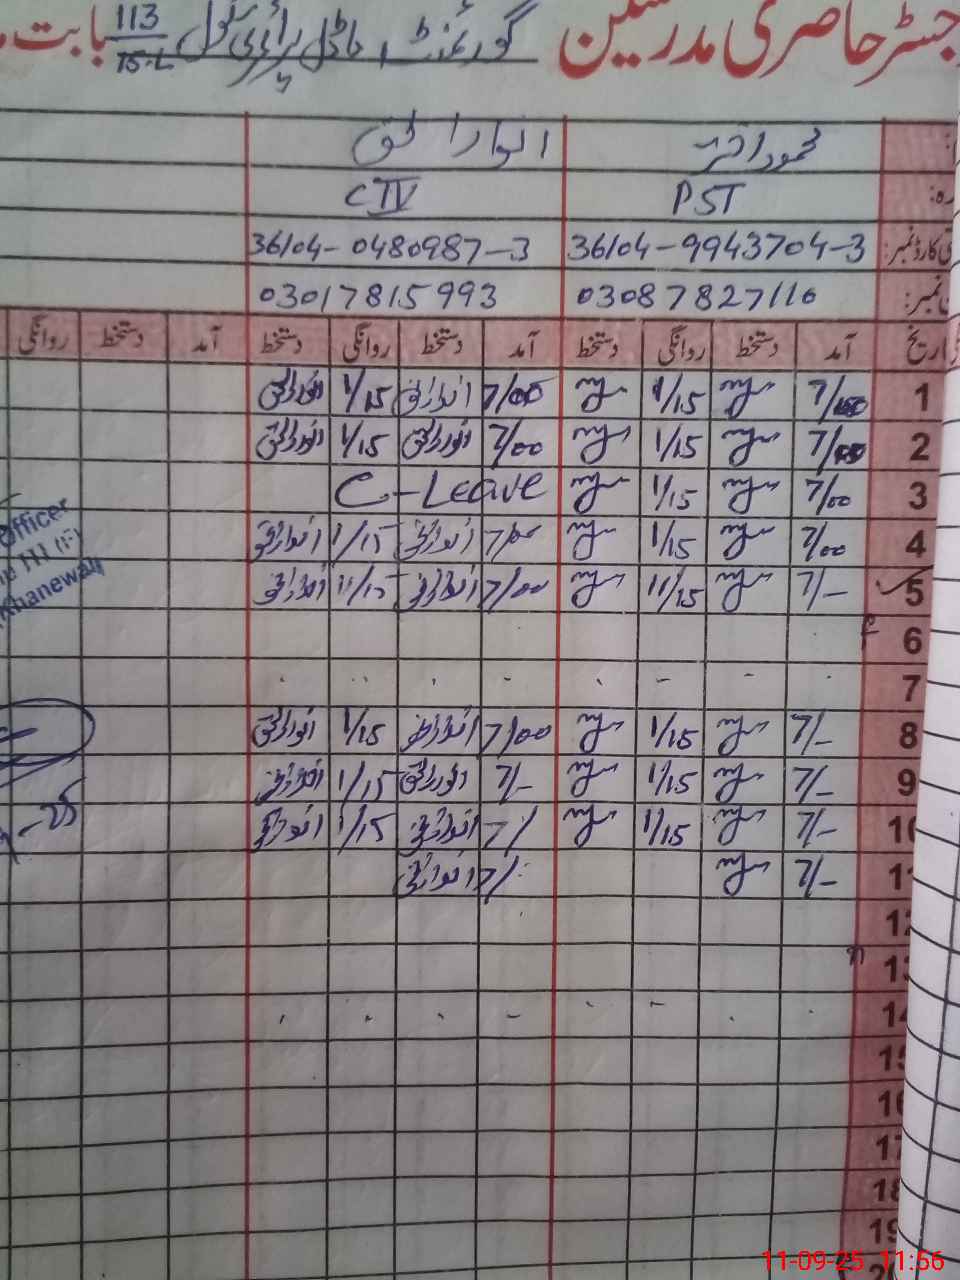 رجسٹر حاضری مدرسین گورنمنٹ ماڈل پرائمری سکول 113/15-L بابت
محمود اختر انوار الحق
PST CTIV
36104-9943704-3 36104-0480987-3
03087827116 03017815993
تاریخ آمد دستخط روانگی دستخط آمد دستخط روانگی دستخط آمد دستخط روانگی
1 7/00 1/15 7/00 انوارالحق 1/15 انوارالحق
2 7/00 1/15 7/00 انوارالحق 1/15 انوارالحق
3 7/00 1/15 C-Leave
4 7/00 1/15 7/00 انوارالحق 1/15 انوارالحق
5 7/- 11/15 7/00 انوارالحق 11/15 انوارالحق
6
7
8 7/- 1/15 7/00 انوارالحق 1/15 انوارالحق
9 7/- 1/15 7/- انوارالحق 1/15 انوارالحق
10 7/- 1/15 7/ انوارالحق 1/15 انوارالحق
11 7/- 7/ انوارالحق
12
13
14
15
16
17
18
19
Officer
Khanewal
11-09-25 11:56